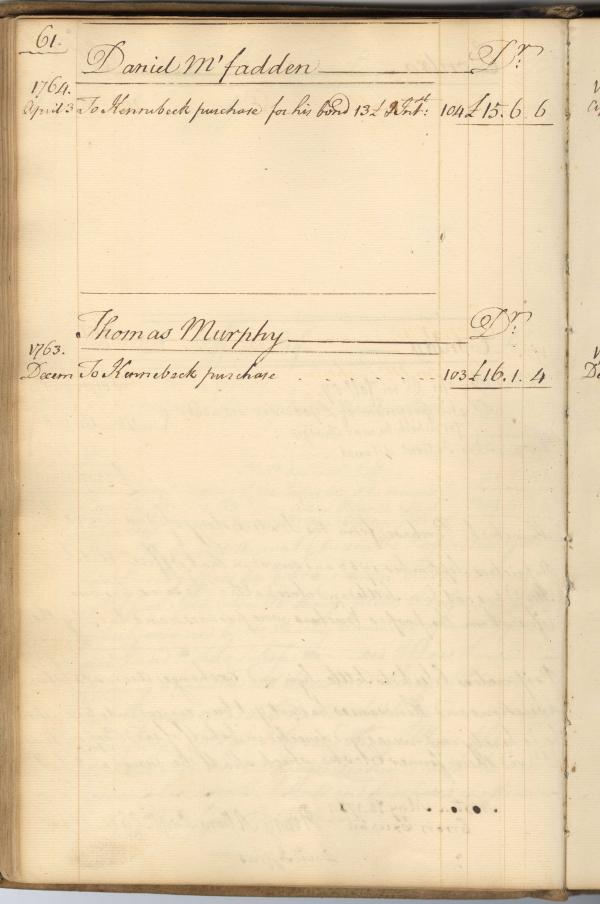 61.
Daniel M'fadden Dr.
1764.
April 3 To Kennebeck purchase for his bond 13£ & Int.: 104 £15. 6 6
Thomas Murphy Dr.
1763.
Decem To Kennebeck purchase 103 £16. 1. 4